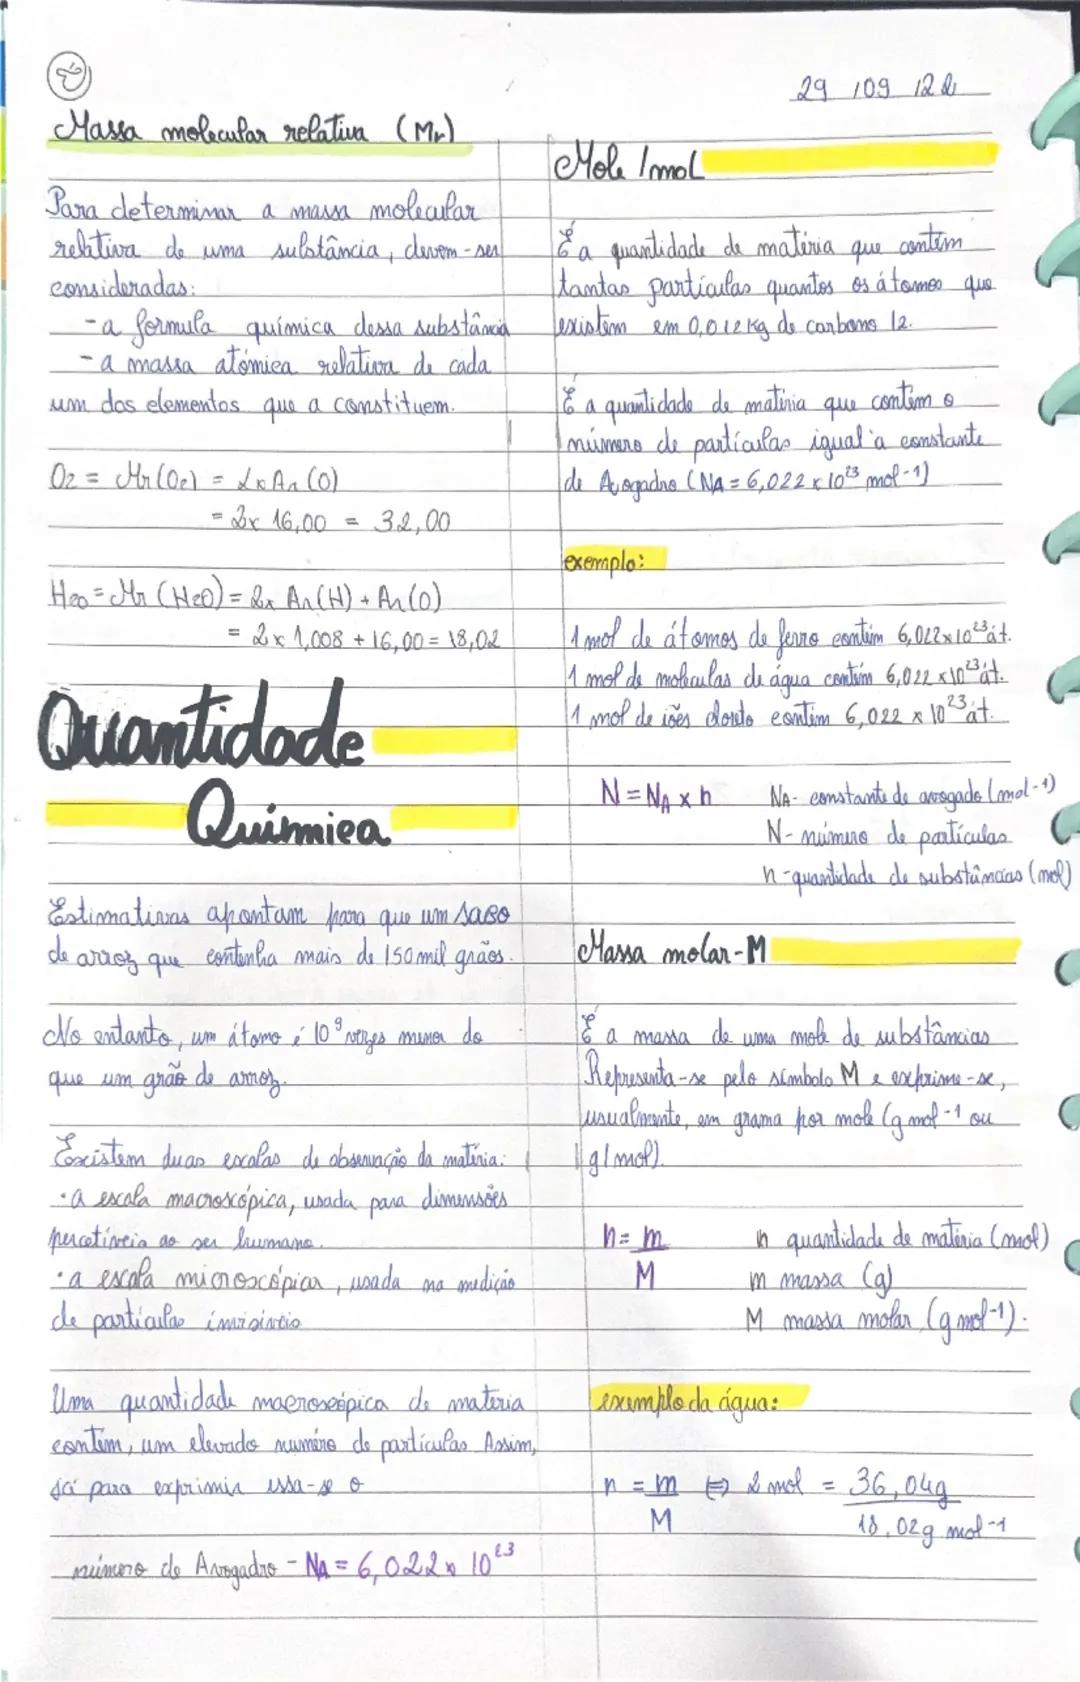 29 / 09 / 22
Massa molecular relativa (Mr)
Para determinar a massa molecular
relativa de uma substância, devem-ser
consideradas:
-a formula química dessa substância
-a massa atómica relativa de cada
um dos elementos que a constituem.
O2 = Mr(O2) = 2x Ar (O)
= 2x 16,00 = 32,00
H2O = Mr (H2O) = 2x Ar(H) + Ar(O)
= 2x 1,008 + 16,00 = 18,02
Quantidade
Química
Estimativas apontam para que um saco
de arroz que contenha mais de 150 mil grãos.
No entanto, um átomo é 10⁹ vezes menor do
que um grão de arroz.
Existem duas escalas de observação da matéria:
·a escala macroscópica, usada para dimensões
percetíveis ao ser humano.
·a escala microscópica, usada na medição
de particulas invisíveis
Uma quantidade macroscópica de materia
contem, um elevado numéro de particulas Assim,
já para exprimir essa-se o
número de Avogadro - NA = 6,022 x 10²³
Mole /mol
É a quantidade de matéria que contém
tantas partículas quantos os átomos que
existem em 0,012 kg de carbono 12.
É a quantidade de matéria que contém o
número de partículas igual à constante
de Avogadro (NA = 6,022 x 10²³ mol-1)
exemplo:
1 mol de átomos de ferro contém 6,022x10²³ át.
1 mol de moleculas de água contém 6,022 x10²³ át.
1 mol de iões cloreto contém 6,022 x 10²³ át.
N = NA x n NA- constante de avogado (mol-1)
N- número de partículas
n -quantidade de substâncias (mol)
Massa molar-M
É a massa de uma mole de substâncias
Representa-se pelo símbolo M e exprime-se,
usualmente, em grama por mole (g mol-1 ou
g/mol).
n = m n quantidade de matéria (mol)
M m massa (g)
M massa molar (g mol-1).
exemplo da água:
n = m ⇔ 2 mol = 36,04g
M 18,02g mol-1